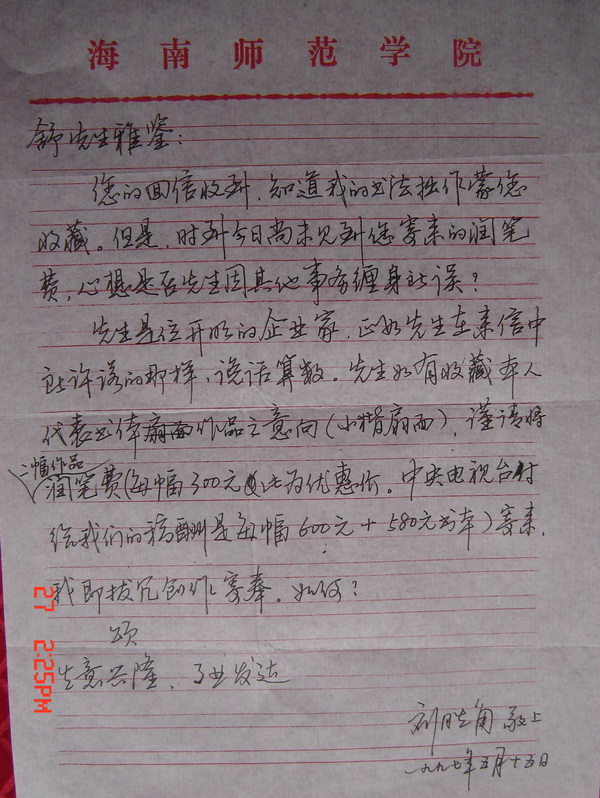 海南师范学院
舒先生雅鉴：
您的回信收到，知道我的书法拙作蒙您
收藏。但是，时到今日尚未见到您寄来的润笔
费，心想是否先生因其他事务缠身所误？
先生是位开明的企业家，正如先生在来信中
所许诺的那样，说话算数。先生如有收藏本人
代表书体扇面作品之意向（小楷扇面），谨请将
二幅作品
润笔费（每幅300元，此为优惠价。中央电视台付
给我们的稿酬是每幅600元+580元书本）寄来，
我即拨冗创作寄奉，如何？
颂
生意兴隆、事业发达
刘胜角 敬上
一九九七年五月十五日
27 2:25PM